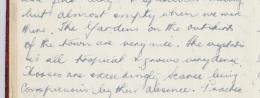 but almost empty when we were
there. The Gardens on the outskirts
of the town are very nice. The
is all tropical & grows
are exceedingly scarce being
conspicuous by their absence.